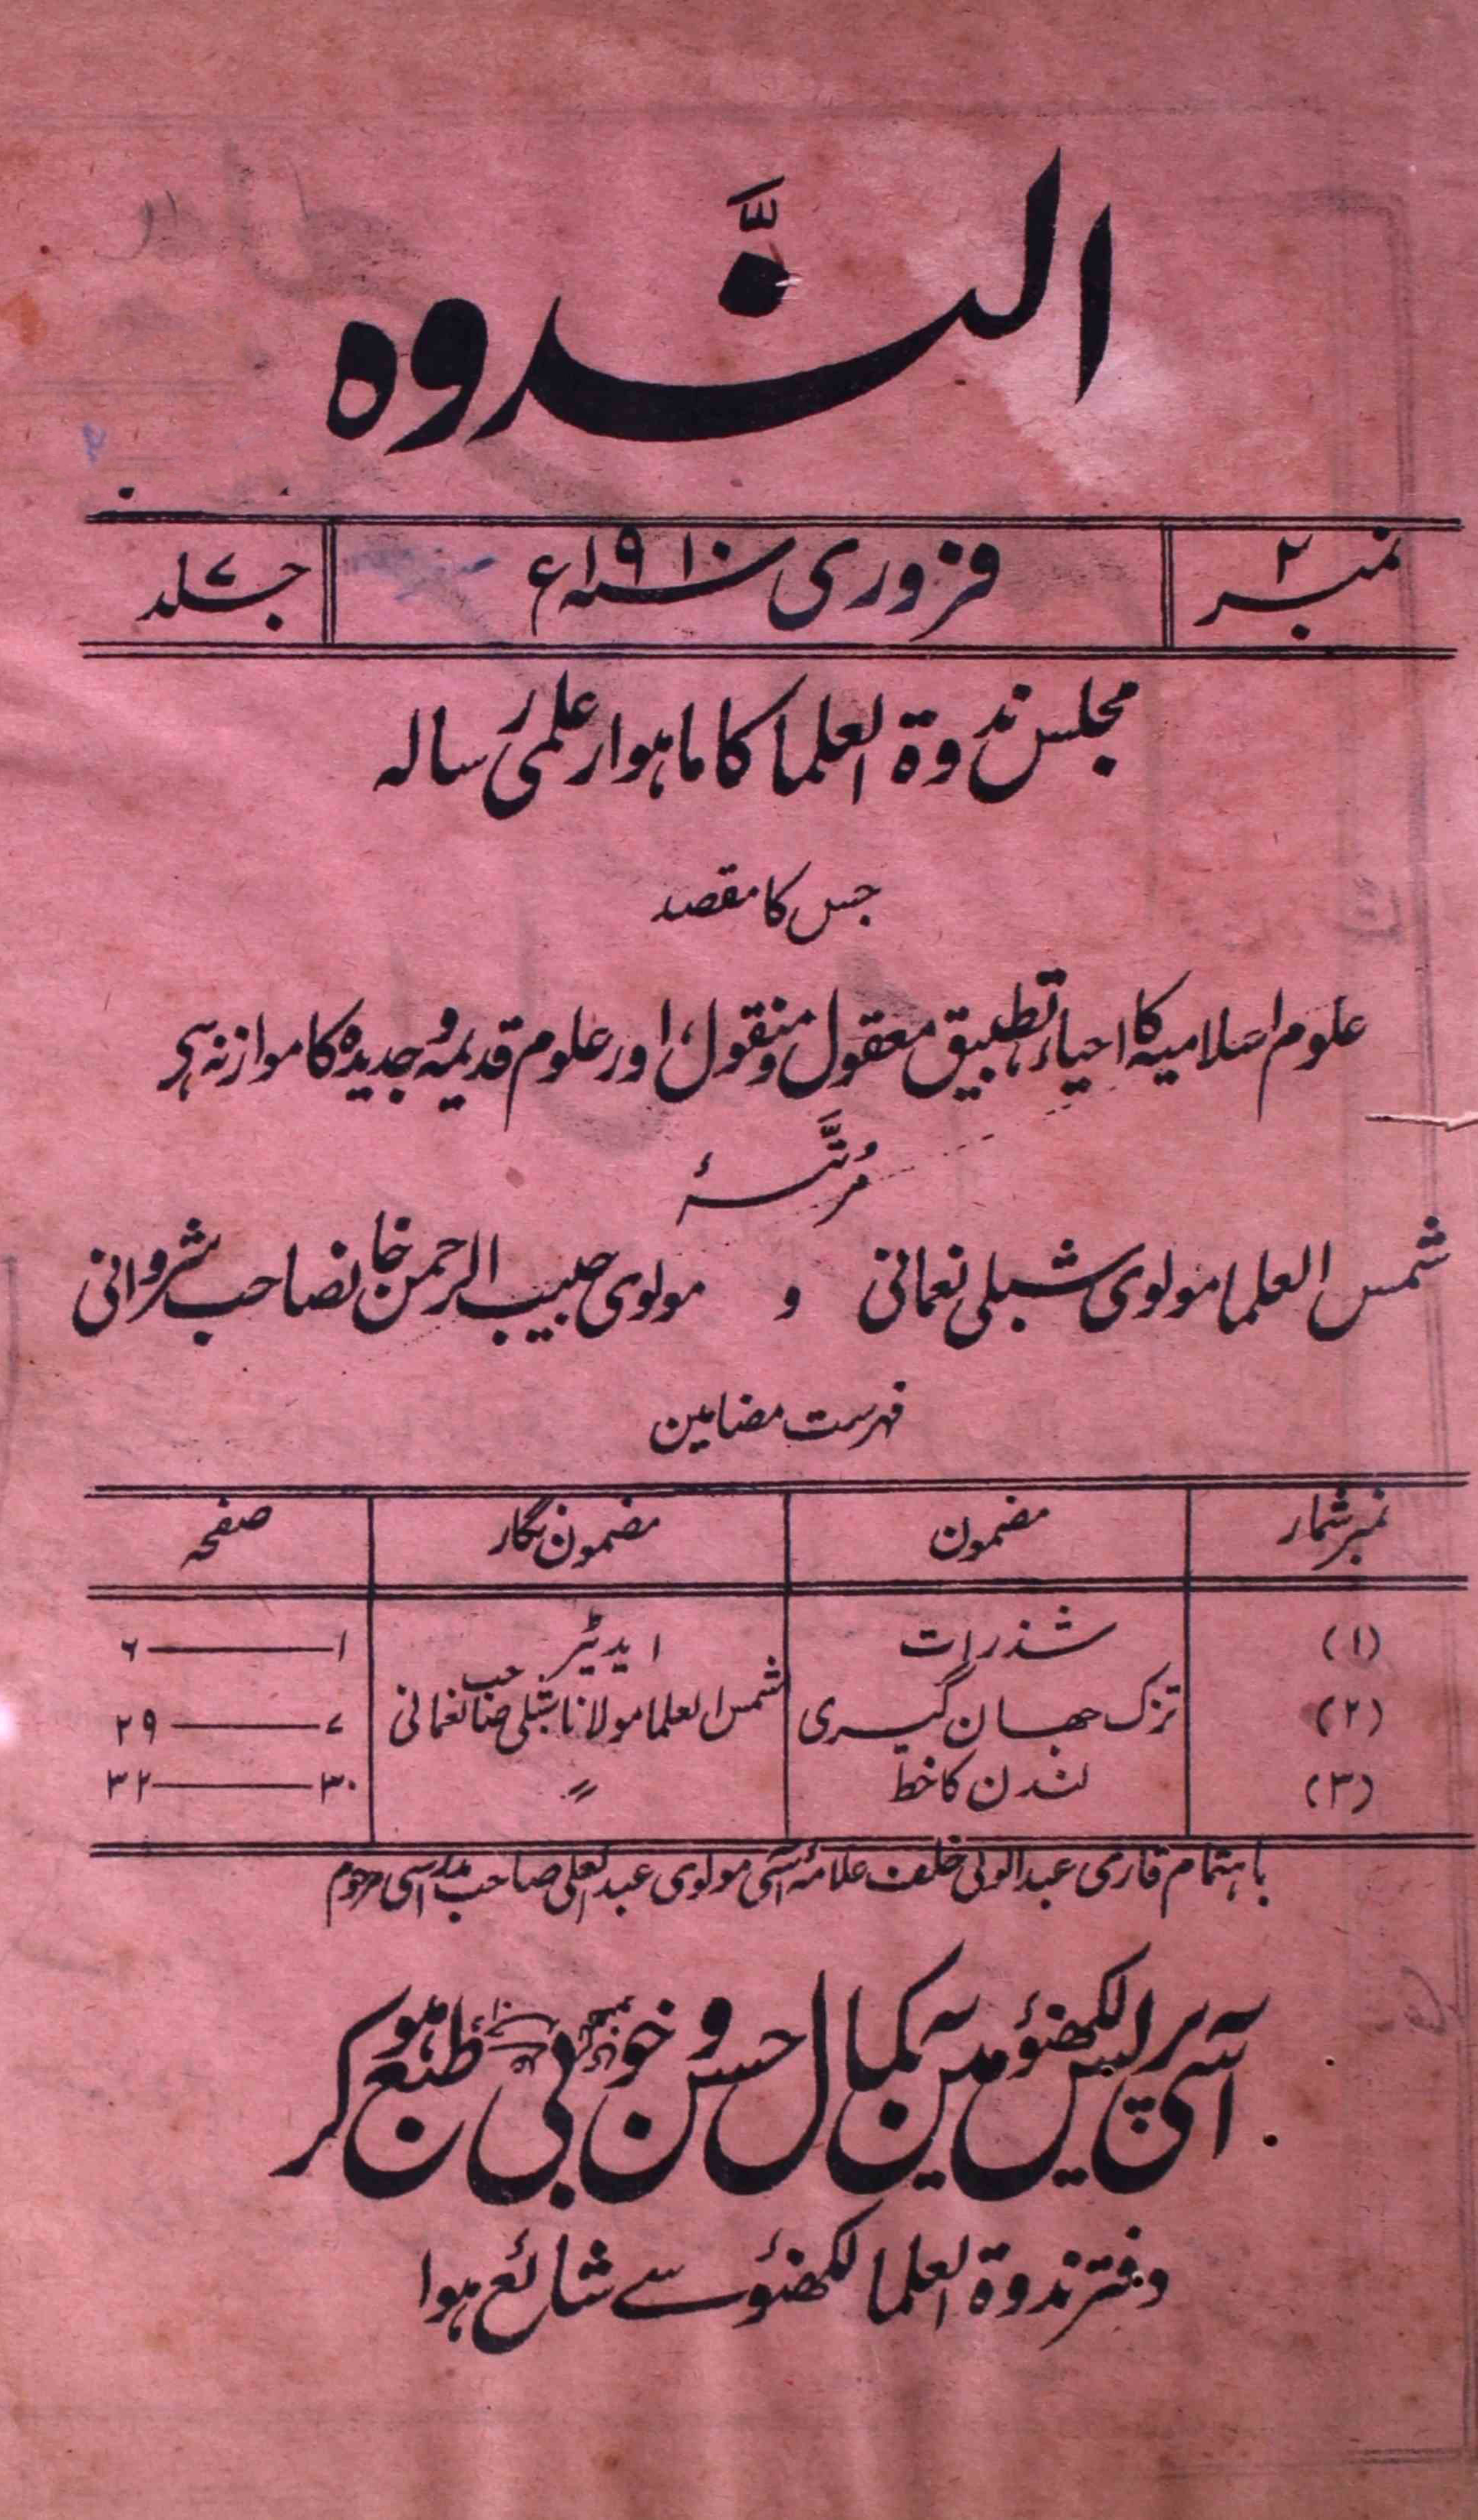 النَّدوہ
نمبر ۲ فروری سنہ ۱۹۱۰ء جلد ۷
مجلس ندوۃ العلما کا ماہوار علمی رسالہ
جس کا مقصد
علوم اسلامیہ کا احیاء، تطبیق معقول و منقول، اور علوم قدیمہ و جدیدہ کا موازنہ ہی
مُرتَّبۂ
شمس العلما مولوی شبلی نعمانی و مولوی حبیب الرحمن خانصاحب شروانی
فہرست مضامین
نمبر شمار مضمون مضمون نگار صفحہ
(۱) شذرات ایڈیٹر ۱——۶
(۲) تزک جہان گیری شمس العلما مولانا شبلی صاحب نعمانی ۷——۲۹
(۳) لندن کا خط 〃 ۳۰——۳۲
باہتمام قاری عبدالولی خلف علامۂ آسی مولوی عبدالعلی صاحب مدراسی مرحوم
آسی پریس لکھنؤ میں بکمال حسن و خوبی طبع ہو کر
دفتر ندوۃ العلما لکھنؤ سے شائع ہوا